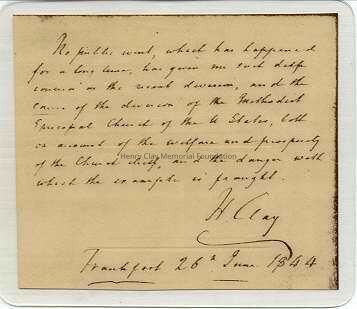 No public event, which has happened
for a long time, has given me such deep
concern as the recent division, and the
cause of the division of the Methodist
Episcopal Church of the U States, both
on account of the welfare and prosperity
of the Church itself, and the danger with
Henry Clay Memorial Foundation
which the example is fraught.
H. Clay
Frankfort 26h June 1844